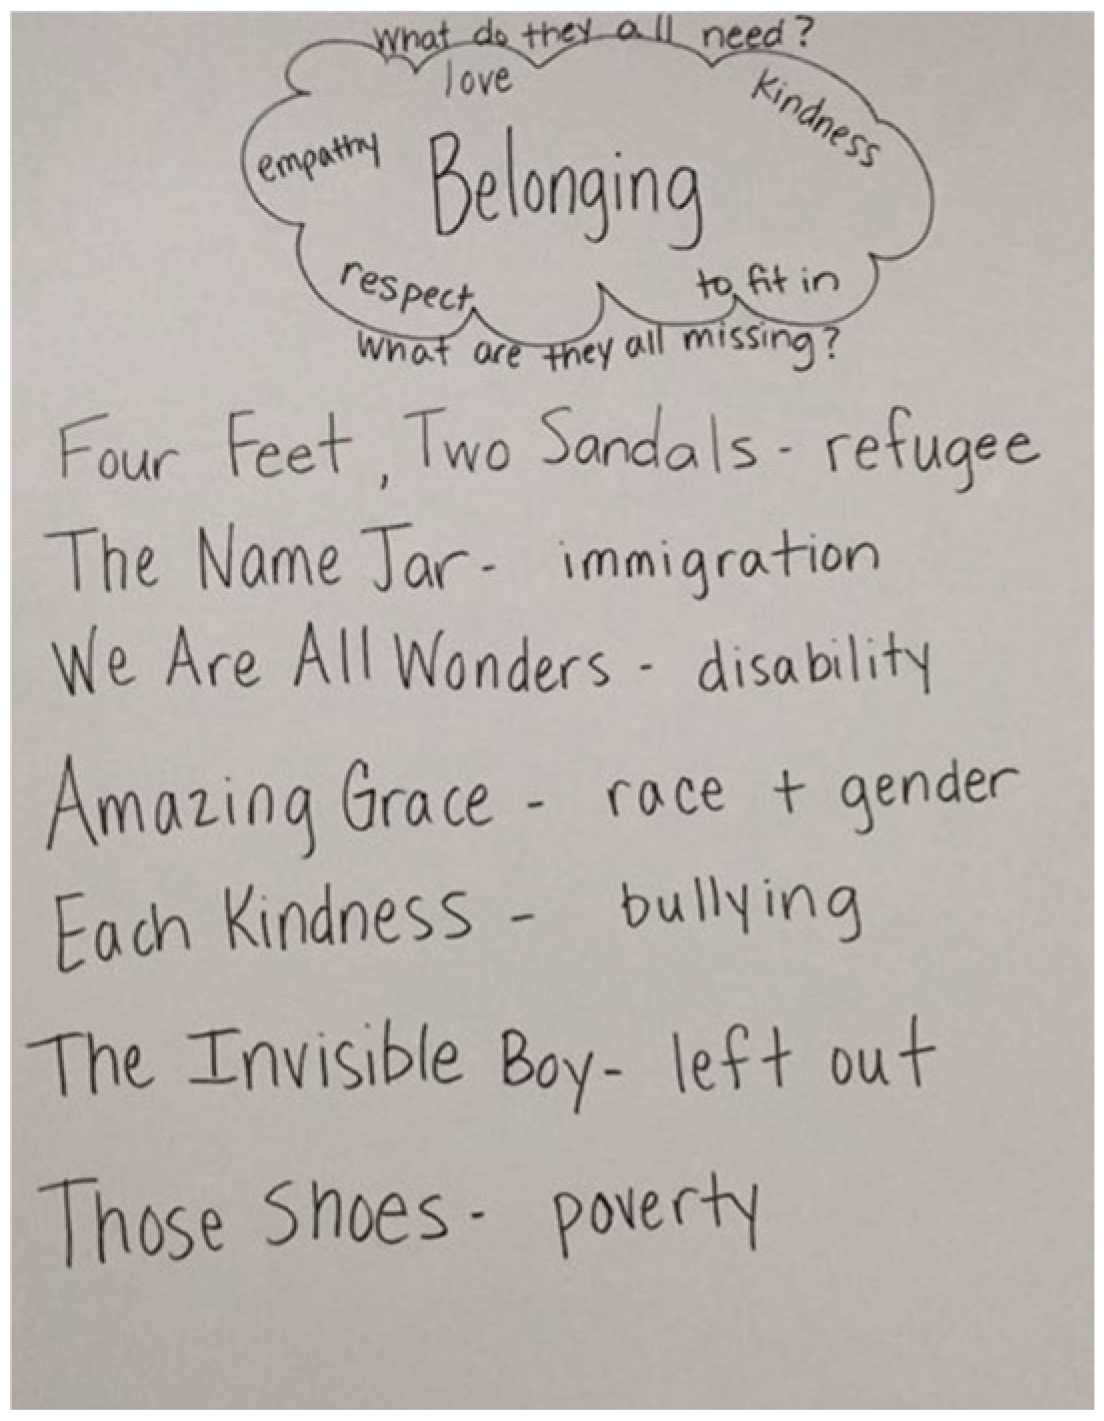 What do they all need?
love
Kindness
empathy
Belonging
respect
to fit in
What are they all missing?
Four Feet, Two Sandals - refugee
The Name Jar - immigration
We Are All Wonders - disability
Amazing Grace - race + gender
Each Kindness - bullying
The Invisible Boy - left out
Those Shoes - poverty